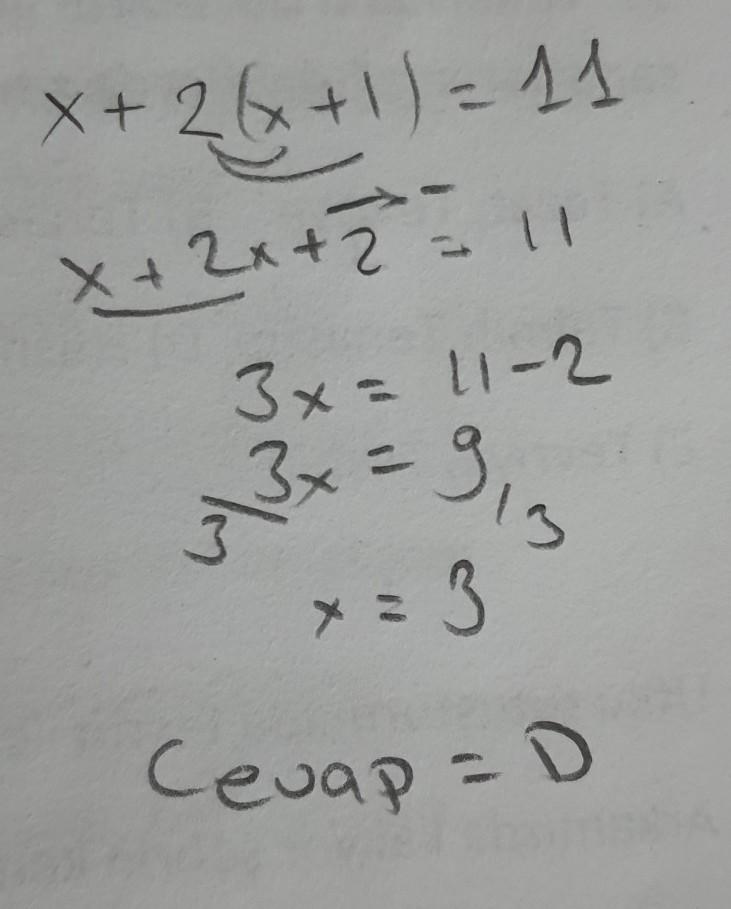 x + 2(x + 1) = 11
x + 2x + 2 = 11
3x = 11 - 2
3x = 9
3 / 3
x = 3
Cevap = D